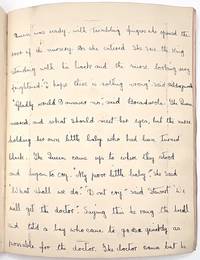 Queen was ready, with trembling fingers she opened the
door of the nursery. As she entered She saw the King
standing with his back and the nurse looking very
frightened "I hope there is nothing wrong" said
would I
and what should meet her eyes, but the nurse
holding her own little baby who had been turned
black. The Queen came up to where they stood
and began to cry. "My poor little baby" she said
"What shall we do." "Don't cry" said "We
will get the doctor". Saying this he rang the bell
and told a boy who came to go as quickly as
possible for the doctor. The doctor came but he